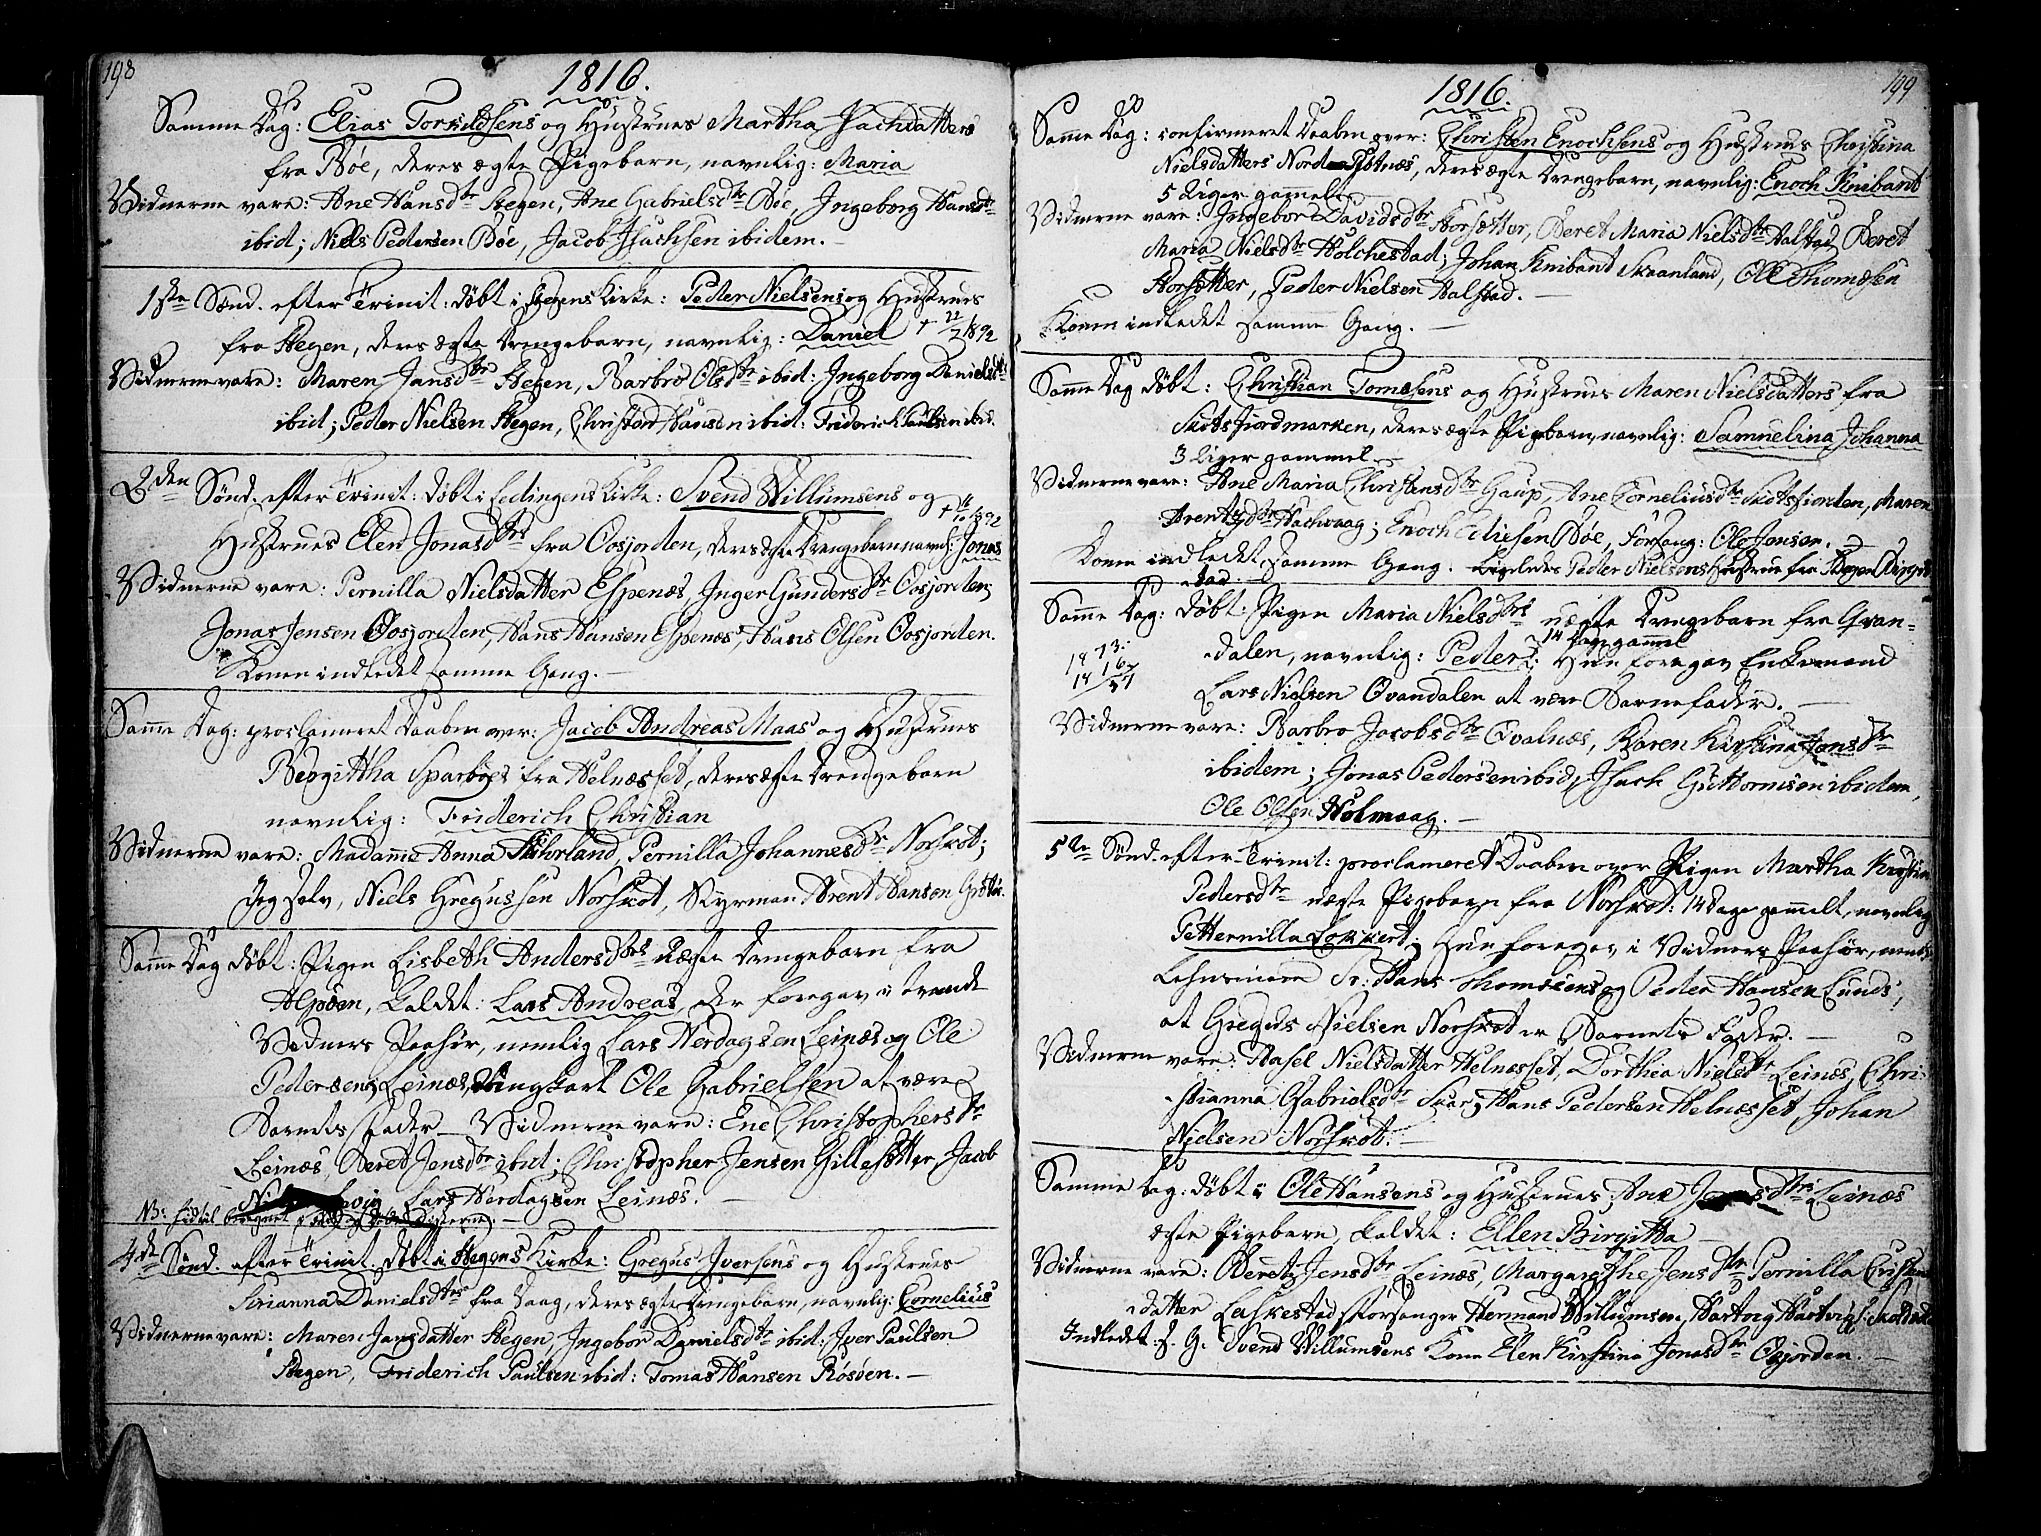 198
1816.
Samme Dag: Elias Torkildsens og Hustrues Martha Isachdatters
fra Bøe, deres ægte Pigebarn, navnlig: Maria
Vidnerne vare: Ane Hansdtr Stegen, Ane Gabrielsdtr Bøe, Ingeborg Hansdtr
ibid; Niels Pedersen Bøe, Jacob Isachsen ibidem.
1ste Sønd. efter Trinit: døbt i Stegens Kirke: Peder Nielsens og Hustrues
fra Stegen, deres ægte Drengebarn, navnlig: Daniel + 22/7 1892
Vidnerne vare: Maren Jansdtr Stegen, Barbro Olsdtr ibid: Ingeborg Danielsdtr
ibid; Peder Nielsen Stegen, Christen Hansen ibid: Friderich Paulsen ibid.
2den Sønd. efter Trinit: døbt i Ledingens Kirke: Svend Willumsens og
Hustrues Elen Jonasdtrs fra Oosjorden, deres ægte Drengebarn navnl: Jonas
Vidnerne vare: Pernilla Nielsdatter Espenæs, Inger Gundersdtr Oosjorden;
Jonas Jensen Oosjorden, Hans Hansen Espenæs, Hans Olsen Oosjorden.
Konen indledet samme Gang.
Samme Dag: proclameret Daaben over: Jacob Andreas Maas og Hustrues
Bergittha Sparboes fra Helnæsset, deres ægte Drengebarn
navnlig: Friderich Christian
Vidnerne vare: Madamme Anna Schrland, Pernilla Johannesdtr Norskot;
Jeg selv, Niels Gregussen Norskot, Styrman Arent Hansen
Samme Dag døbt: Pigen Lisbeth Andersdtrs uægte Drengebarn fra
Alpøen, kaldet: Lars Andreas, der foregav i tvende
Vidners Paahør, nemlig Lars Nerdagsen Leinæs og Ole
Pedersen Leinæs, Ungkarl Ole Gabrielsen at være
Barnets Fader. Vidnerne vare: Ene Christophersdtr
Leinæs, Beret Jensdtr ibid; Christopher Jensen Gillesetter, Jacob
Lars Nerdagsen Leinæs.
4de Sønd. efter Trinit. døbt i Stegens Kirke: Gregus Iversens og Hustrues
Sirianna Danielsdtrs fra Vaag, deres ægte Drengebarn, navnlig: Cornelius
Vidnerne vare: Maren Jansdatter Stegen, Ingebor Danielsdtr ibid: Iver Paulsen
Stegen, Friderich Paulsen ibid: Tomas Hansen Røsøen.
199
1816.
Samme Dag: confirmeret Daaben over: Christen Enochsens og Hustrues Christina
Nielsdatters Nord, deres ægte Drengebarn, navnlig: Enoch Knibant
5 Uger gammel.
Vidnerne vare: Ingebor Davidsdtr Storsætter, Beret Maria Nielsdtr Halstad, Beret
Maria Nielsdtr Holchestad; Johan Knibant Skaanland, Ole Thomesen
Storsetter, Peder Nielsen Halstad.
Konen indledet samme Gang.
Samme Dag døbt: Christian Tomesens og Hustrues Maren Nielsdatters fra
Skotsfiordmarken, deres ægte Pigebarn, navnlig: Samuelina Johanna
3 Uger gammel.
Vidnerne vare: Ane Maria Christensdtr Gaup, Ane Corneliusdtr Skotsfiorden, Maren
Arentzdtr; Enoch Bøe, Forsang: Ole Jensen.
Konen indledet samme Gang. Ligeledes Peder Nielsens Hustrue fra Stegen
Samme Dag: døbt: Pigen Maria Nielsdtrs uægte Drengebarn fra Qvan-
dalen, navnlig: Peder, 14 Dage gammel. Hun foregav Enkemand
1873.
1816
Lars Nielsen Qvandalen at være Barnefader.
Vidnerne vare: Barbro Jacobsdtr Qvalnæs, Karen Kirstina Jonsdtr
ibidem; Jonas Pedersen ibid, Isach Guttormsen ibidem,
Ole Olsen Holmaag.
5te Sønd. efter Trinit: proclameret Daaben over Pigen Martha Kirstina
Pedersdtr uægte Pigebarn fra Norskot: 14 Dage gammelt, navnlig
Petternilla Lokkert, Hun foregav i Vidners Paahør, nemlig
Lehnsmann Sr: Hans Thomesens og Peder Hansen Lunds,
at Gregus Nielsen Norskot er Barnets Fader.
Vidnerne vare: Rasel Nielsdatter Helnæsset, Dorthea Nielsdtr Leinæs, Chri-
stianna Gabrielsdtr Skaar; Hans Pedersen Helnæsset, Johan
Nielsen Norskot.
Samme Dag: døbt: Ole Hansens og Hustrues Ane Leinæs
ægte Pigebarn, kaldet: Ellen Birgitta
Vidnerne vare: Beret Jensdtr Leinæs, Margarethe Jensdtr, Pernilla
datter Laskestad, Forsanger Hermand Willumsen, Hartvig
Indledet s. G. Svend Willumsens Kone Elen Kirstina Jonasdtr Osjorden.